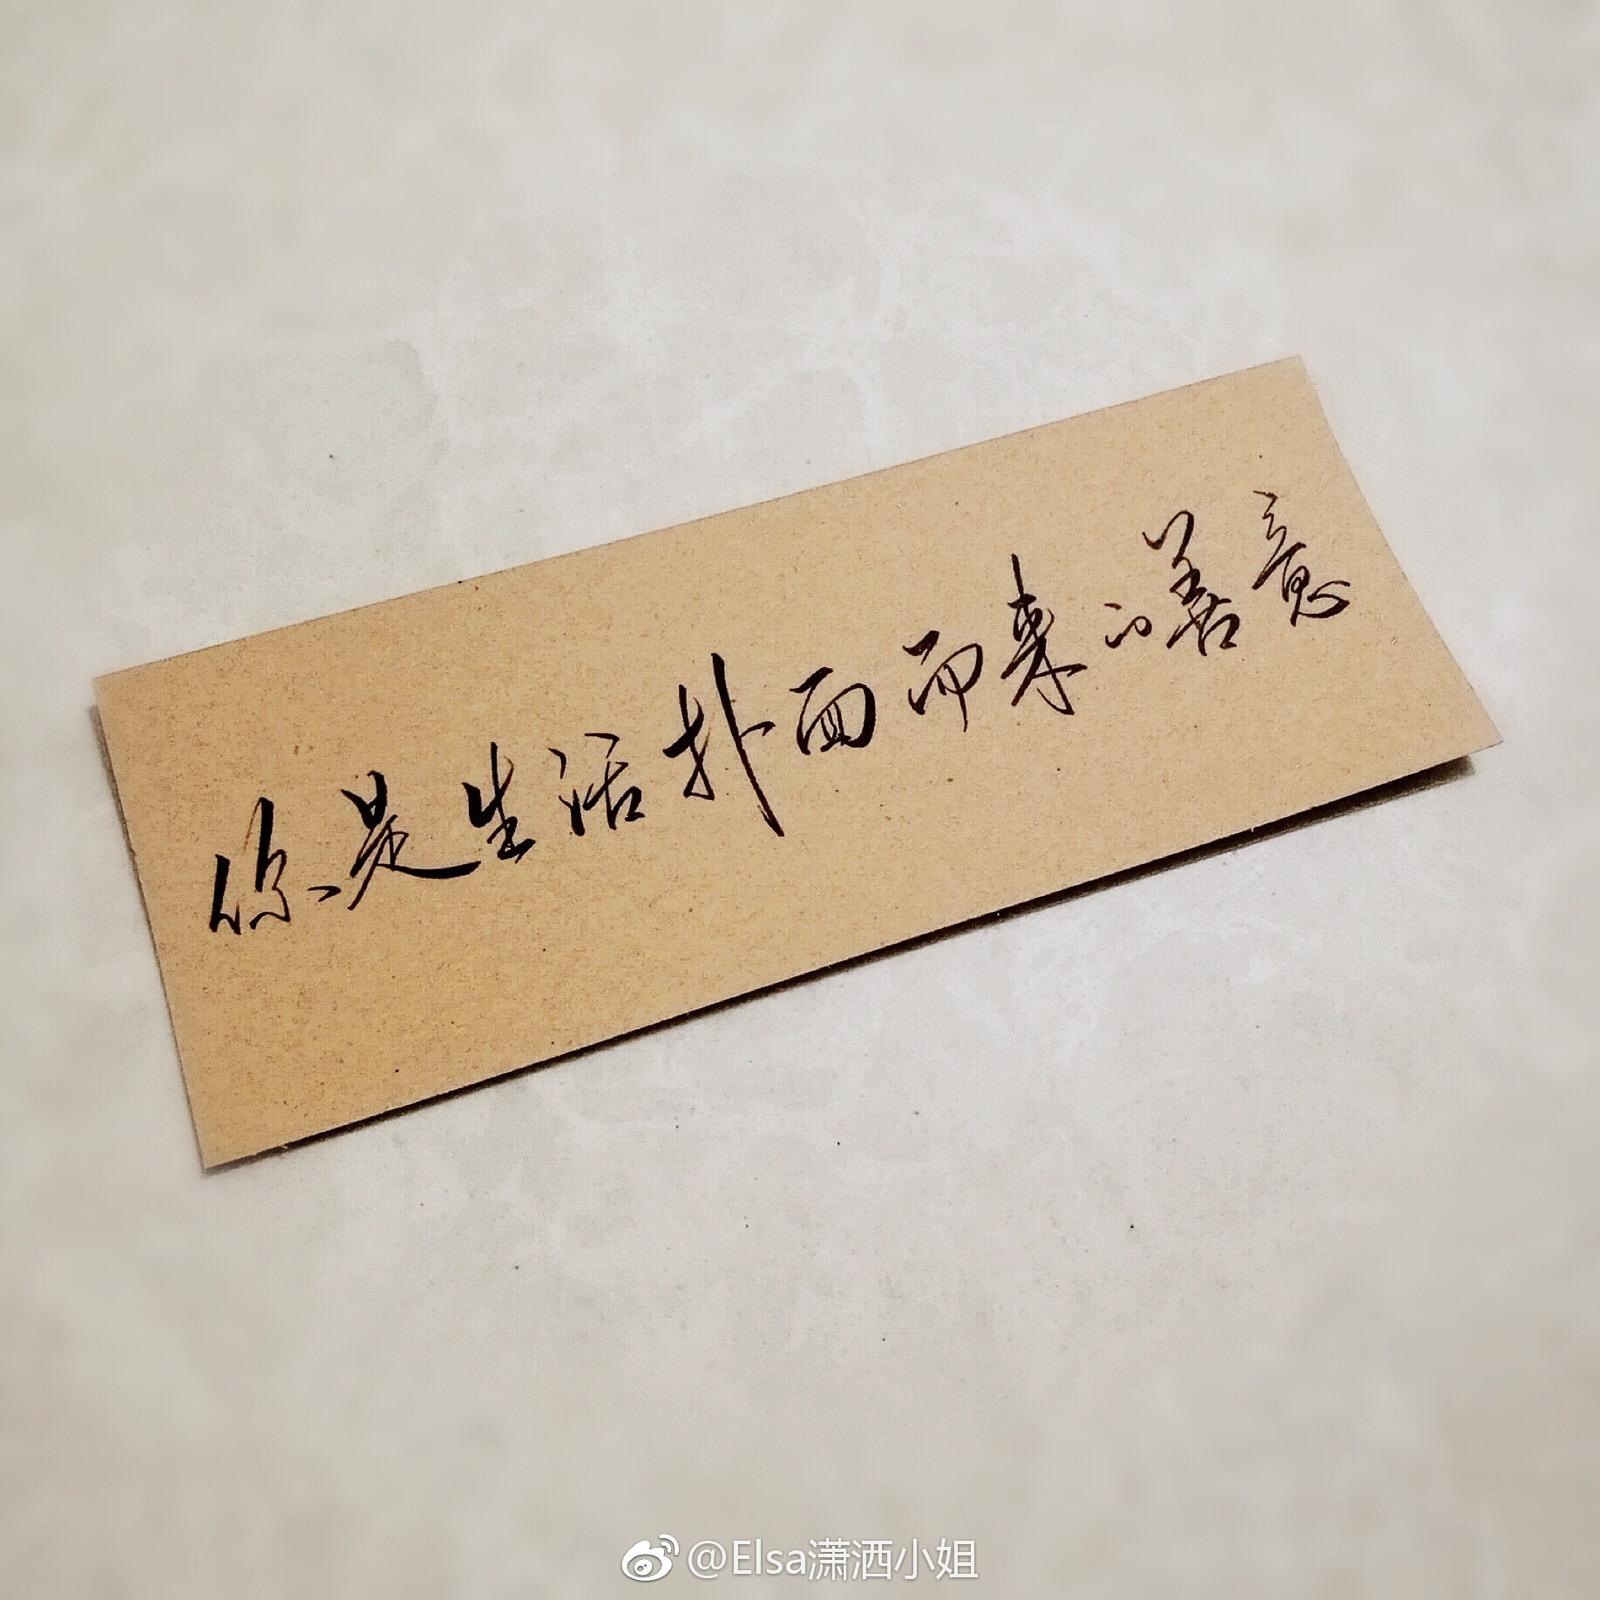 你是生活扑面而来的善意
@Elsa潇洒小姐